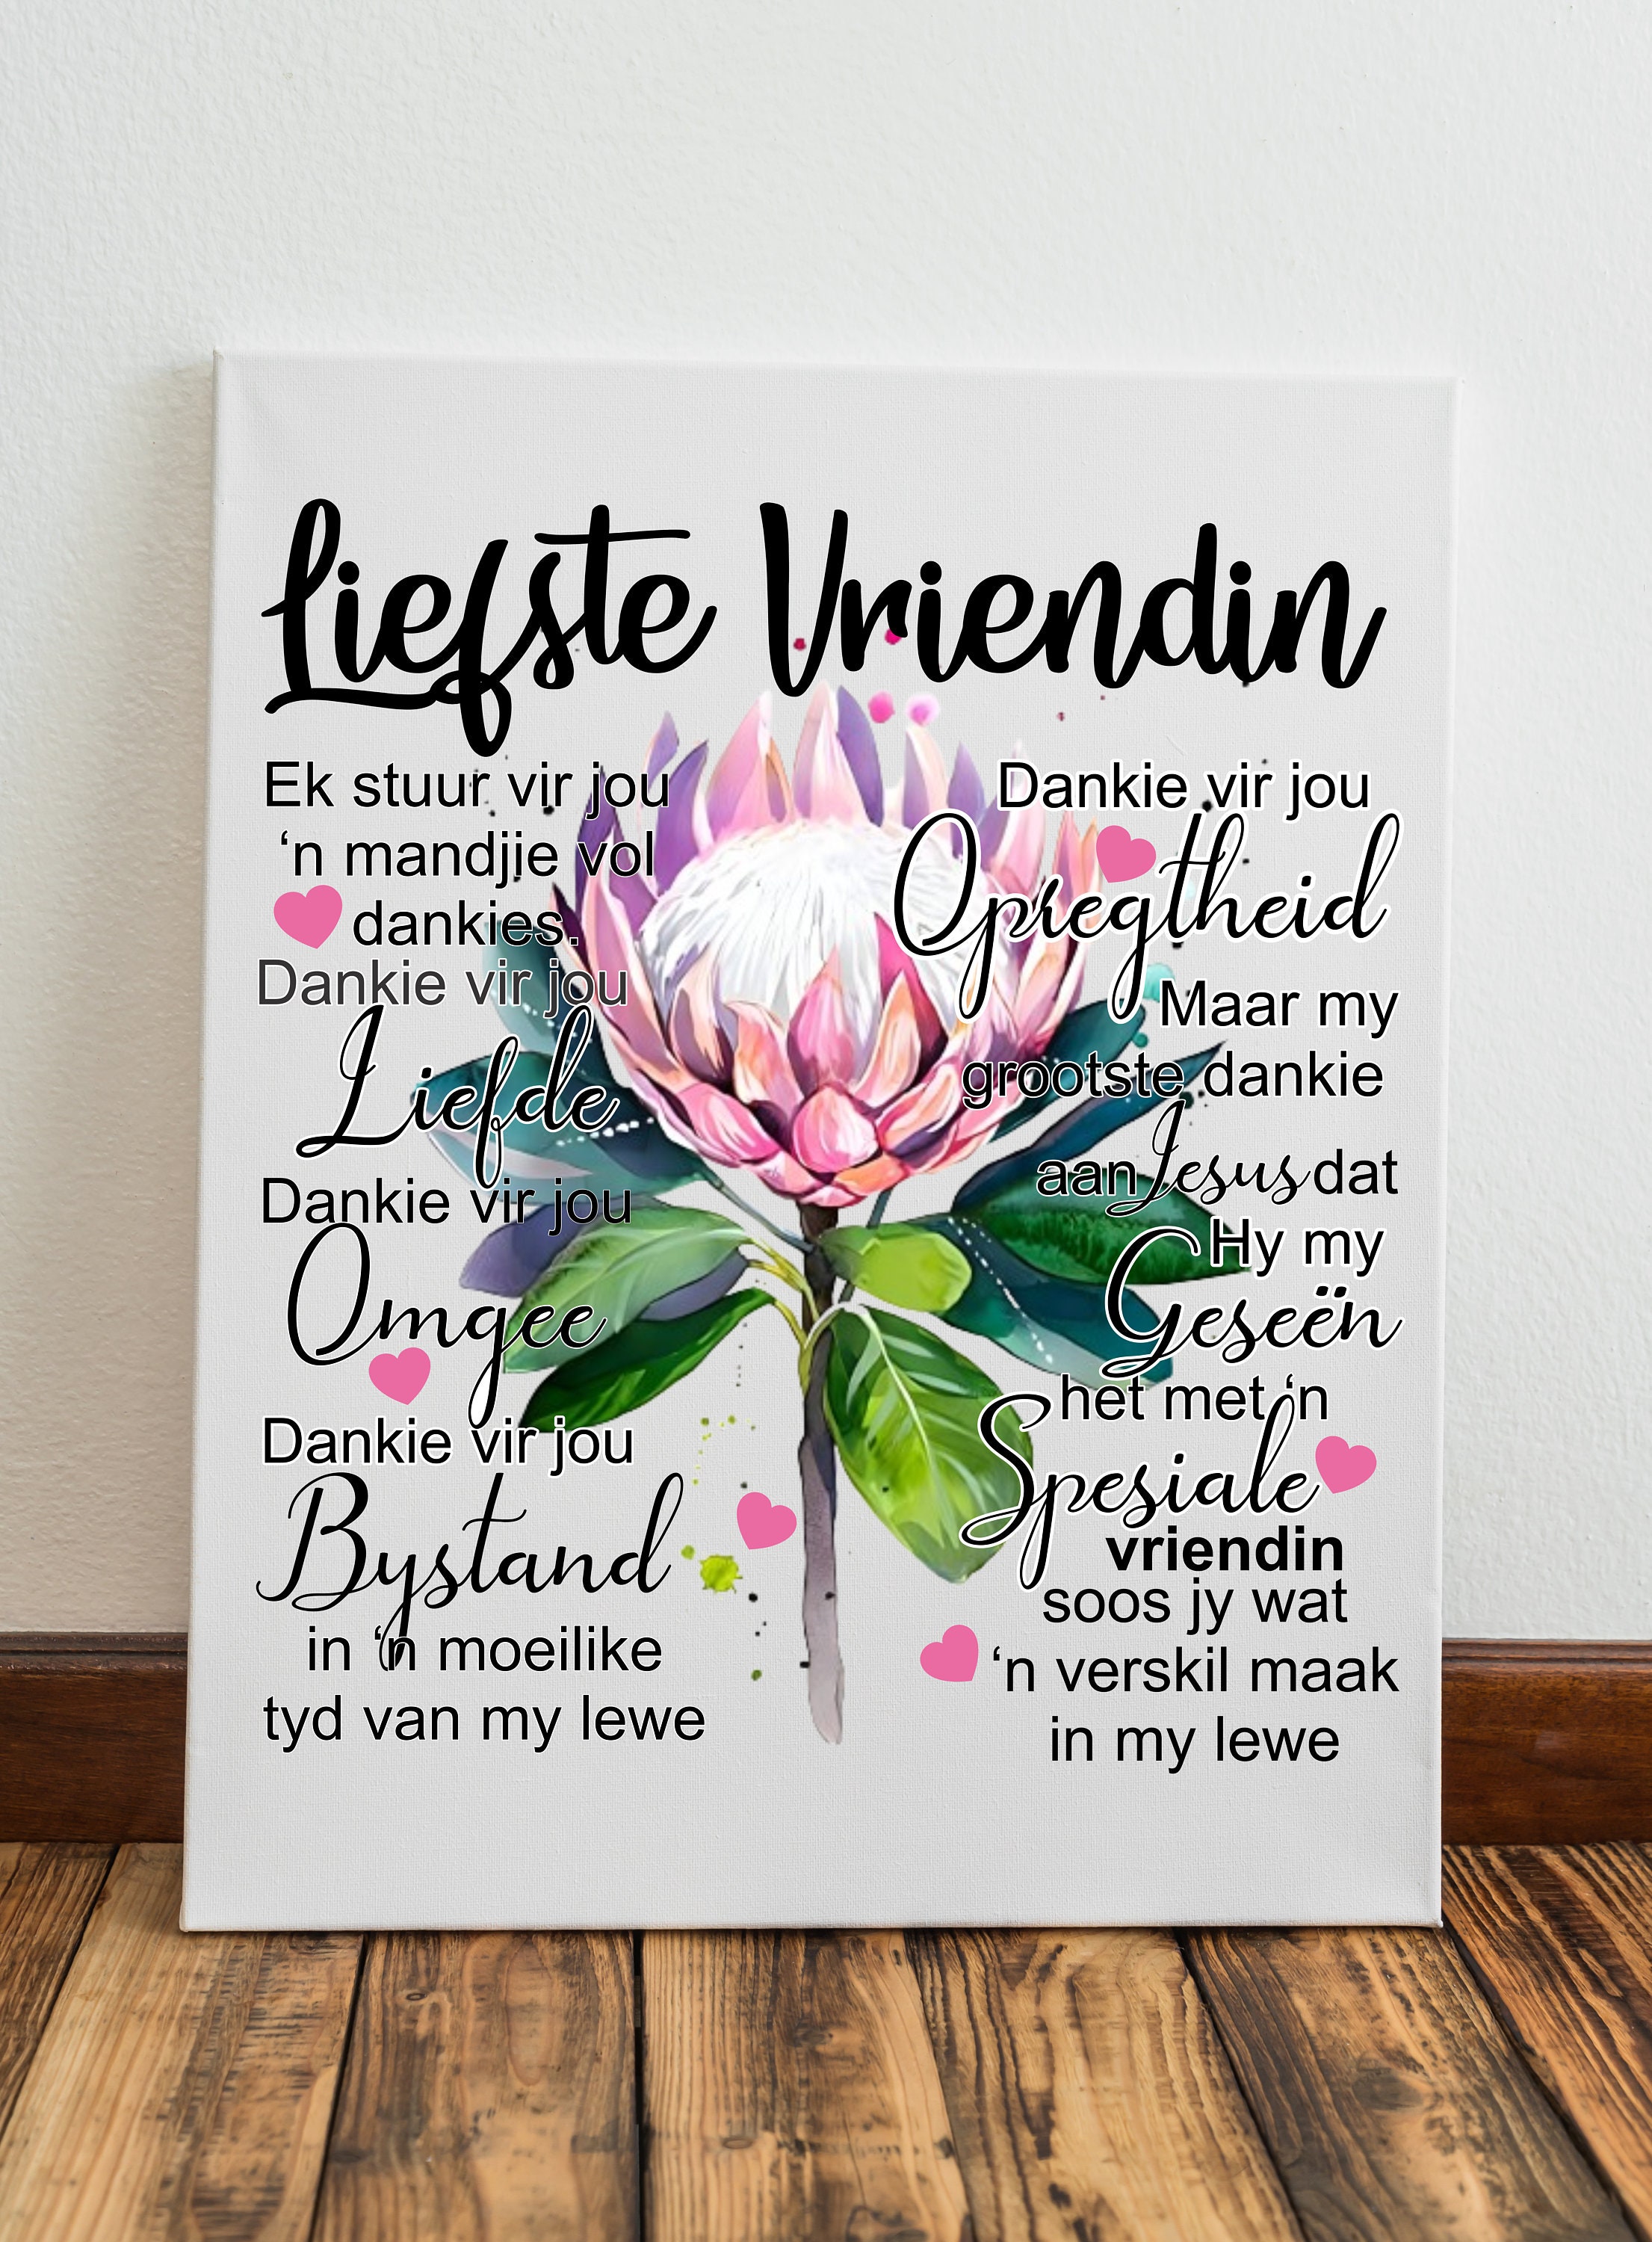 Liefste Vriendin
Ek stuur vir jou
‘n mandjie vol
dankies.
Dankie vir jou
Liefde
Dankie vir jou
Omgee
Dankie vir jou
Bystand
in ‘n moeilike
tyd van my lewe
Dankie vir jou
Opregtheid
Maar my
grootste dankie
aan Jesus dat
Hy my
Geseën
het met ‘n
Spesiale
vriendin
soos jy wat
‘n verskil maak
in my lewe